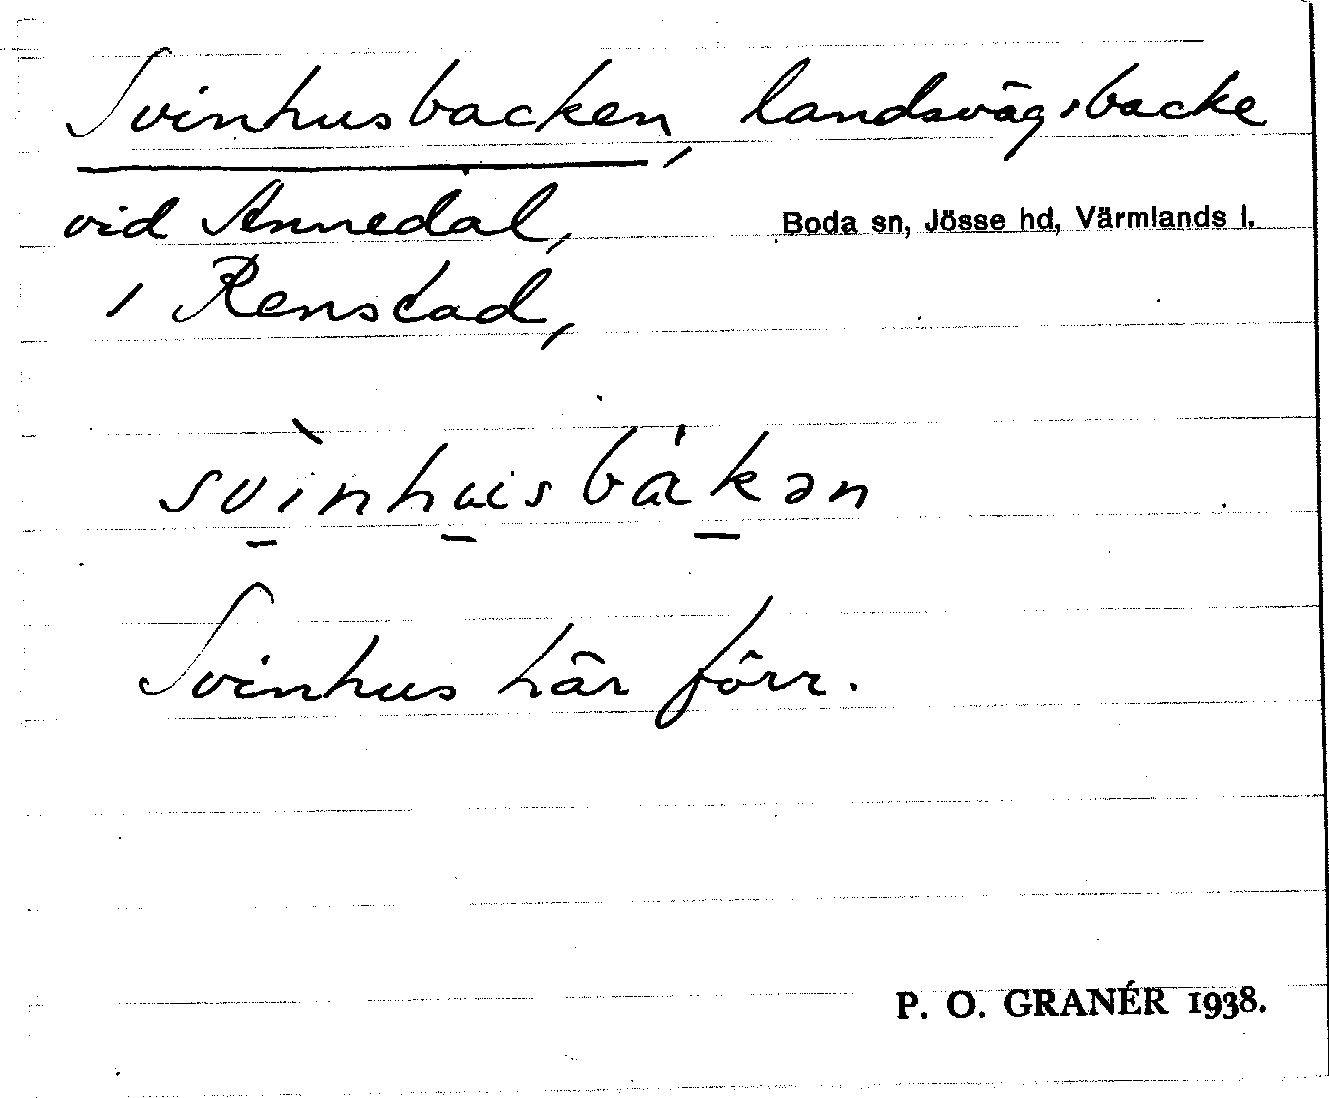 Svinhusbacken, landsvägsbacke
vid Annedal, Boda sn, Jösse hd, Värmlands l.
i Renstad,
svìnhusbákən
Svinhus här förr.
P. O. GRANÉR 1938.